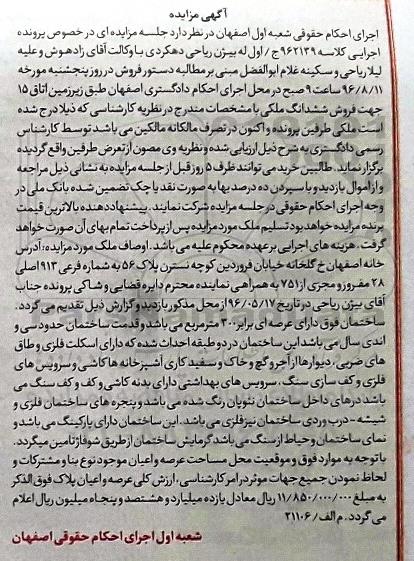 آگهی مزایده
اجرای احکام حقوقی شعبه اول اصفهان در نظر دارد جلسه مزایده ای در خصوص پرونده
اجرایی کلاسه ۹۶۲۱۳۹ج/اول له بیژن ریاحی دهکردی با وکالت آقای زادهوش و علیه
لیلا ریاحی و سکینه غلام ابوالفضل مبنی بر مطالبه دستور فروش در روز پنجشنبه مورخه
۹۶/۸/۱۱ ساعت ۹ صبح در محل اجرای احکام دادگستری اصفهان طبق زیرزمین اتاق ۱۵
جهت فروش ششدانگ ملکی با مشخصات مندرج در نظریه کارشناسی که ذیلا درج شده
است ملکی طرفین پرونده و اکنون در تصرف مالکانه مالکین می باشد توسط کارشناس
رسمی دادگستری به شرح ذیل ارزیابی شده و نظریه وی مصون از تعرض طرفین واقع گردیده
برگزار نماید. طالبین خرید می توانند ظرف ۵ روز قبل از جلسه مزایده به نشانی ذیل مراجعه
و از اموال بازدید و با سپردن ده درصد بها به صورت نقد یا چک تضمین شده بانک ملی در
وجه اجرای احکام حقوقی در جلسه مزایده شرکت نمایند. پیشنهاددهنده بالاترین قیمت
برنده مزایده خواهد بود تسلیم ملک مورد مزایده پس از پرداخت تمام بهای آن صورت خواهد
گرفت. هزینه های اجرایی بر عهده محکوم علیه می باشد. اوصاف ملک مورد مزایده: آدرس
خانه اصفهان خ گلخانه خیابان فروردین کوچه نسترن پلاک ۵۶ به شماره فرعی ۹۱۳ اصلی
۲۸ مفروز و مجزی از ۷۵۱ به همراهی نماینده محترم دایره قضایی و شاکی پرونده جناب
آقای بیژن ریاحی در تاریخ ۹۶/۰۵/۱۷ از محل مذکور بازدید و گزارش ذیل تقدیم می گردد.
ساختمان فوق دارای عرصه ای برابر ۳۰۰ مترمربع می باشد و قدمت ساختمان حدود سی و
اندی سال می باشد این ساختمان در دو طبقه احداث شده که دارای اسکلت فلزی و طاق
های ضربی، دیوارها از آجر و گچ و خاک و سفید کاری آشپزخانه ها کاشی و سرویس های
فلزی و کف سازی سنگ، سرویس های بهداشتی دارای بدنه کاشی و کف و کف سنگ می
باشد درهای داخل ساختمان نئوپان رنگ شده می باشد و پنجره های ساختمان فلزی و
شیشه - درب وردی ساختمان نیز فلزی می باشد. این ساختمان دارای پارکینگ می باشد و
نمای ساختمان و حیاط از سنگ می باشد گرمایش ساختمان از طریق شوفاژ تامین میگردد.
با توجه به موارد فوق و موقعیت محل مساحت عرصه و اعیان موجود نوع بنا و مشترکات و
لحاظ نمودن جمیع جهات موثر در امر کارشناسی، ارزش کلی عرصه و اعیان پلاک فوق الذکر
به مبلغ ۱۱/۸۵۰/۰۰۰/۰۰۰ ریال معادل یازده میلیارد و هشتصد و پنجاه میلیون ریال اعلام
می گردد. م الف/ ۲۱۱۰۶
شعبه اول اجرای احکام حقوقی اصفهان